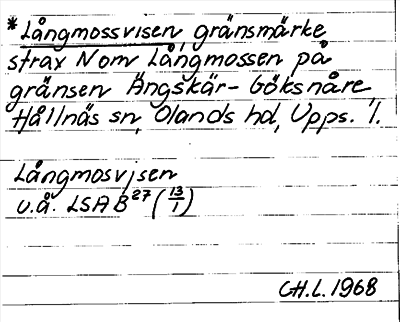 *Långmossvisen, gränsmärke
strax N om Långmossen på
gränsen Ängskär-Göksnåre,
Hållnäs sn, Olands hd, Upps. l.
Långmosvisen
u.å. LSA B27 (13/1)
CH.L. 1968